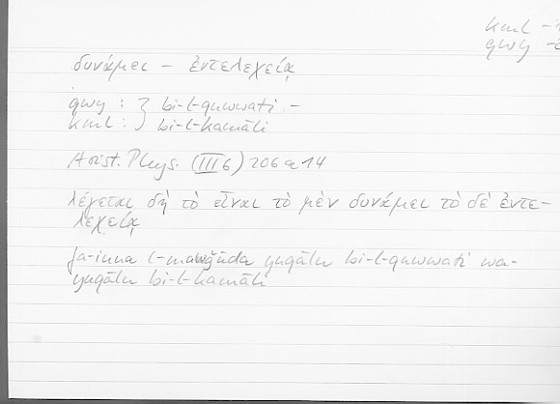 kml -
qwy -
δυνάμει – ἐντελεχείᾳ
qwy : } bi-l-quwwati –
kml : } bi-l-kamāli
Arist. Phys. (III 6) 206 a 14
λέγεται δὴ τὸ εἶναι τὸ μὲν δυνάμει τὸ δὲ ἐντε-
λεχείᾳ
fa-inna l-mawǧūda yuqālu bi-l-quwwati wa-
yuqālu bi-l-kamāli